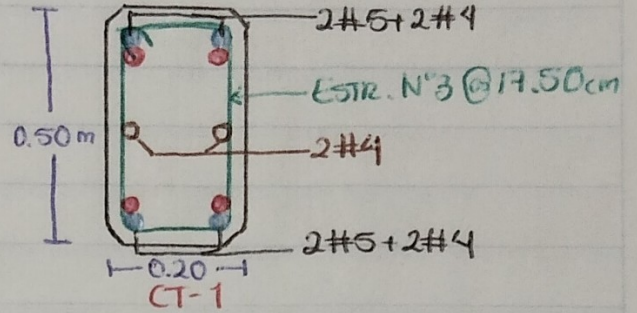 2#5+2#4
ESTR. N°3 @ 17.50cm
0.50m
2#4
2#5+2#4
0.20
CT-1